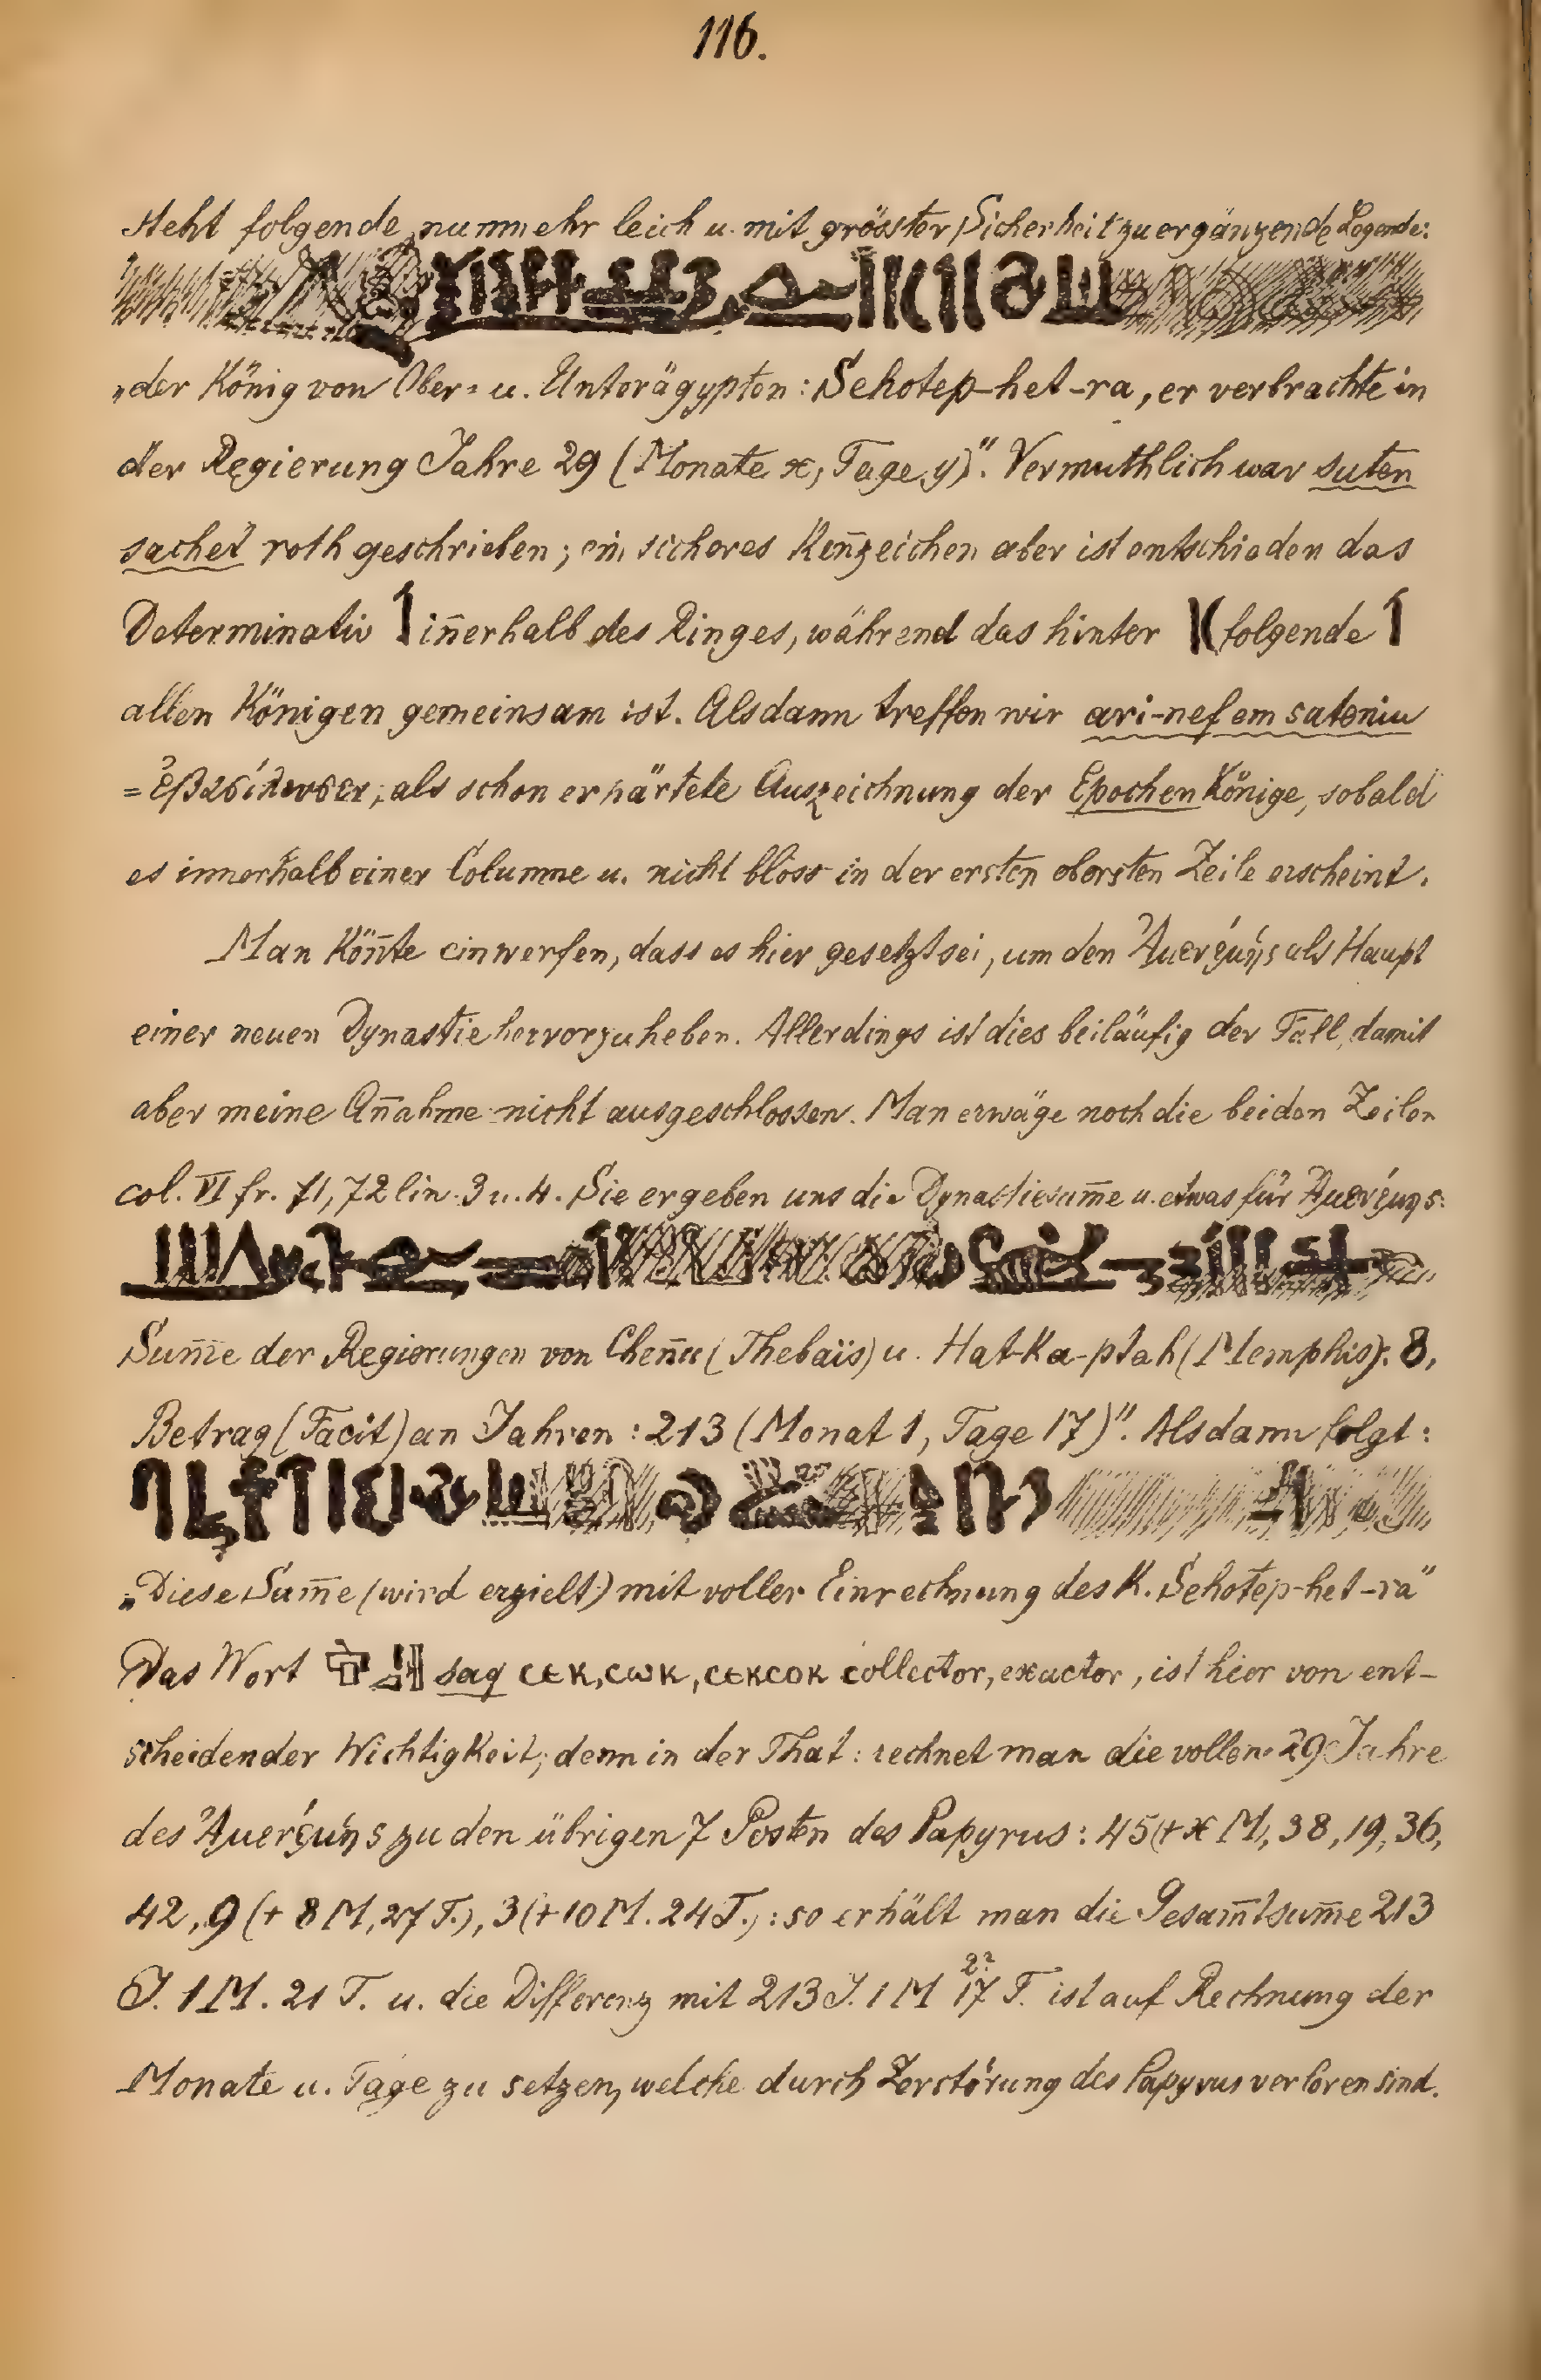 116.
steht folgende, nunmehr leich u. mit grösster Sicherheit zu ergänzende Legende:
„der König von Ober- u. Unterägypten: Sehotep-het-ra, er verbrachte in
der Regierung Jahre 29 (Monate x, Tage y)". Vermuthlich war suten
sachet roth geschrieben; ein sicheres Kenn̄zeichen aber ist entschieden das
Determinativ in̄erhalb des Ringes, während das hinter folgende
allen Königen gemeinsam ist. Alsdann treffen wir ari-nef em suteniu
= ἐβασίλευσεν, als schon erhärtete Auszeichnung der Epochenkönige, sobald
es innerhalb einer Columne u. nicht bloss in der ersten obersten Zeile erscheint.
Man kön̄te einwerfen, dass es hier gesetzt sei, um den Ἀμενέμης als Haupt
einer neuen Dynastie hervorzuheben. Allerdings ist dies beiläufig der Fall, damit
aber meine An̄ahme nicht ausgeschlossen. Man erwäge noch die beiden Zeilen
col. VI fr. 71, 72 lin. 3 u. 4. Sie ergeben uns die Dynastiesum̄e u. etwas für Ἀμενέμης:
Sum̄e der Regierungen von Chen̄u (Thebaïs) u. Hat-Ka-ptah (Memphis): 8,
Betrag (Facit) an Jahren: 213 (Monat 1, Tage 17)". Alsdann folgt:
„Diese Sum̄e (wird erzielt) mit voller Einrechnung des K. Sehotep-het-ra"
Das Wort saq ⲥⲉⲕ, ⲥⲱⲕ, ⲥⲉⲕⲥⲟⲕ collector, exactor, ist hier von ent-
scheidender Wichtigkeit; denn in der That: rechnet man die vollen 29 Jahre
des Ἀμενέμης zu den übrigen 7 Posten des Papyrus: 45 (+ x M), 38, 19, 36,
42, 9 (+ 8 M, 27 T.), 3 (+ 10 M. 24 T.): so erhält man die Gesam̄tsum̄e 213
J. 1 M. 21 T. u. die Differenz mit 213 J. 1 M 17 T. ist auf Rechnung der
Monate u. Tage zu setzen, welche durch Zerstörung des Papyrus verloren sind.